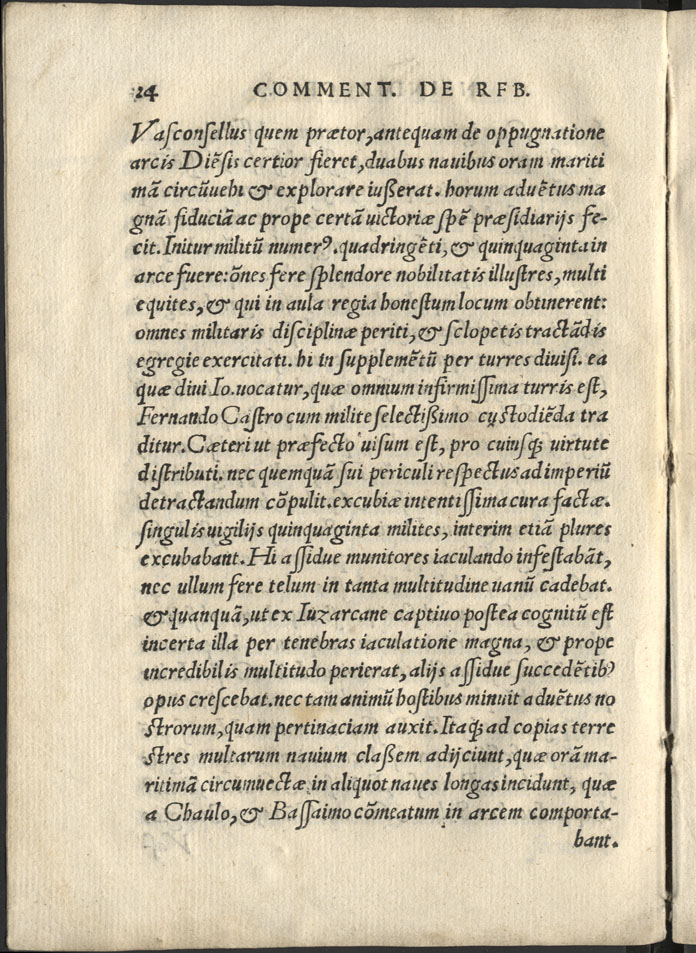 24 COMMENT. DE RFB.
Vasconsellus quem prætor, antequam de oppugnatione
arcis Diẽsis certior fieret, duabus nauibus oram mariti
mã circũuehi & explorare iußerat. horum aduẽtus ma
gnã fiduciã ac prope certã uictoriæ spẽ præsidiarijs fe-
cit. Initur militũ numerꝰ. quadringẽti, & quinquaginta in
arce fuere: õnes fere splendore nobilitatis illustres, multi
equites, & qui in aula regia honestum locum obtinerent:
omnes militaris disciplinæ periti, & sclopetis tractãdis
egregie exercitati. hi in supplemẽtũ per turres diuisi. ea
quæ diui Io. uocatur, quæ omnium infirmissima turris est,
Fernando Castro cum milite selectißimo custodiẽda tra
ditur. Cæteri ut præfecto uisum est, pro cuiusq; uirtute
distributi. nec quemquã sui periculi respectus ad imperiũ
detractandum cõpulit. excubiæ intentissima cura factæ.
singulis uigilijs quinquaginta milites, interim etiã plures
excubabant. Hi assidue munitores iaculando infestabãt,
nec ullum fere telum in tanta multitudine uanũ cadebat.
& quanquã, ut ex Iuzarcane captiuo postea cognitũ est
incerta illa per tenebras iaculatione magna, & prope
incredibilis multitudo perierat, alijs assidue succedẽtibꝰ
opus crescebat. nec tam animũ hostibus minuit aduẽtus no
strorum, quam pertinaciam auxit. Itaq; ad copias terre
stres multarum nauium claßem adijciunt, quæ orã ma-
ritimã circumuectæ in aliquot naues longas incidunt, quæ
a Chaulo, & Bassaimo cõmeatum in arcem comporta-
bant.